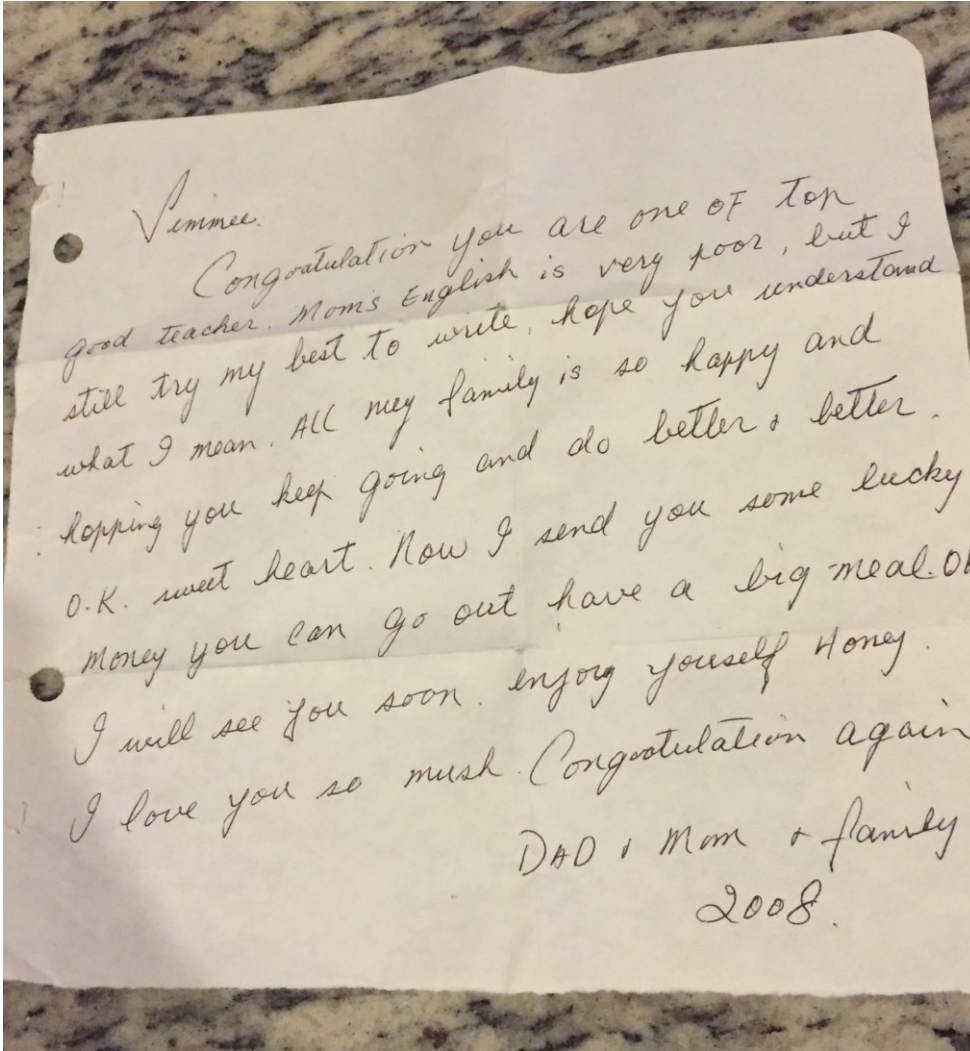 Vimmee.
Congratulation you are one of top
good teacher. Mom's English is very poor, but I
still try my best to write, hope you understand
what I mean. All my family is so happy and
hopping you keep going and do better & better.
O.K. sweet heart. Now I send you some lucky
money you can go out have a big meal. Ok
I will see you soon. enjoy youself Honey.
I love you so mush. Congratulation again
DAD & Mom & family
2008.